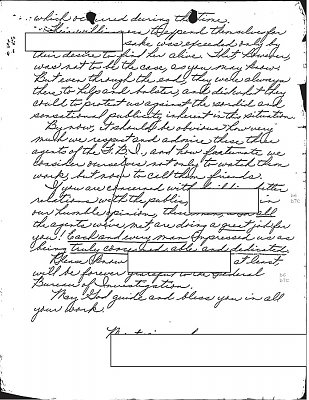 which occurred during the time.
their willingness to expend themselves for
sake was exceeded only by
their desire to find her alive. That however,
was not to be the case, as you may know.
But even through the end, they were always
there to help and bolster, and did what they
could to protect us against the sordid and
sensational publicity inherent in the situation.
By now, it should be obvious how very
much we respect and admire these three
agents of the F.B.I., and how fortunate we
consider ourselves not only to watch them
work, but now to call them friends.
If you are concerned with building better
relations with the public, in
our humble opinion, these men, and all
the agents we've met are doing a great job for
you! Each and every man impressed us as
being truly concerned, able and dedicated.
Please know at least
will be forever grateful to the Federal
Bureau of Investigation.
May God guide and bless you in all
your work.